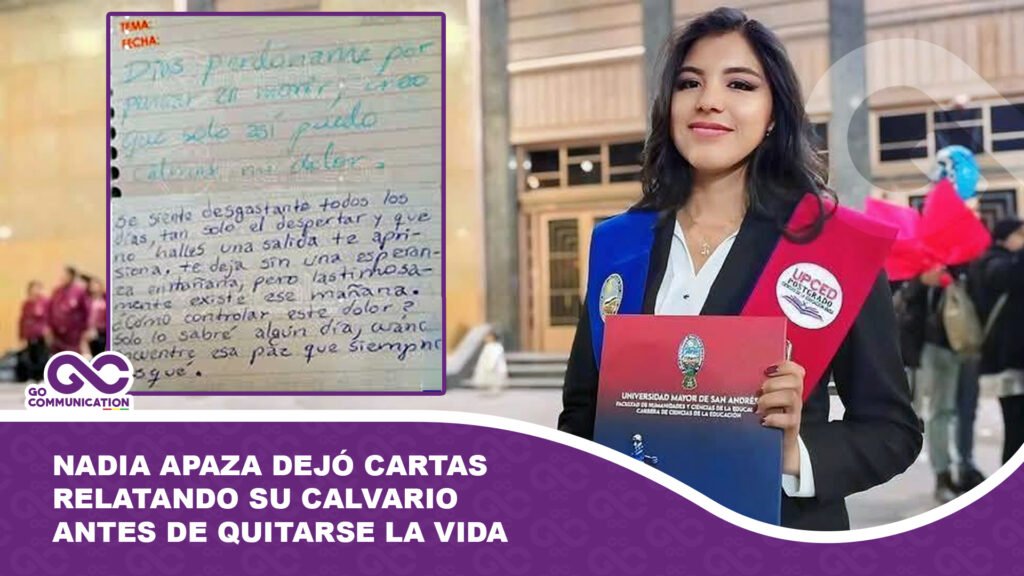 TEMA:
FECHA:
Dios perdóname por
pensar en morir, creo
que solo así puedo
calmar mi dolor.
Se siente desgastante todos los
días, tan solo el despertar y que
no halles una salida te apri-
siona, te deja sin una esperan-
za en mañana, pero lastimosa-
mente existe ese mañana.
¿Cómo controlar este dolor?
solo lo sabré algún día, cuando
encuentre esa paz que siempre
busqué.
GO
COMMUNICATION
UPCED
POSTGRADO
UNIVERSIDAD MAYOR DE SAN ANDRÉS
FACULTAD DE HUMANIDADES Y CIENCIAS DE LA EDUCAC
CARRERA DE CIENCIAS DE LA EDUCACIÓN
NADIA APAZA DEJÓ CARTAS
RELATANDO SU CALVARIO
ANTES DE QUITARSE LA VIDA